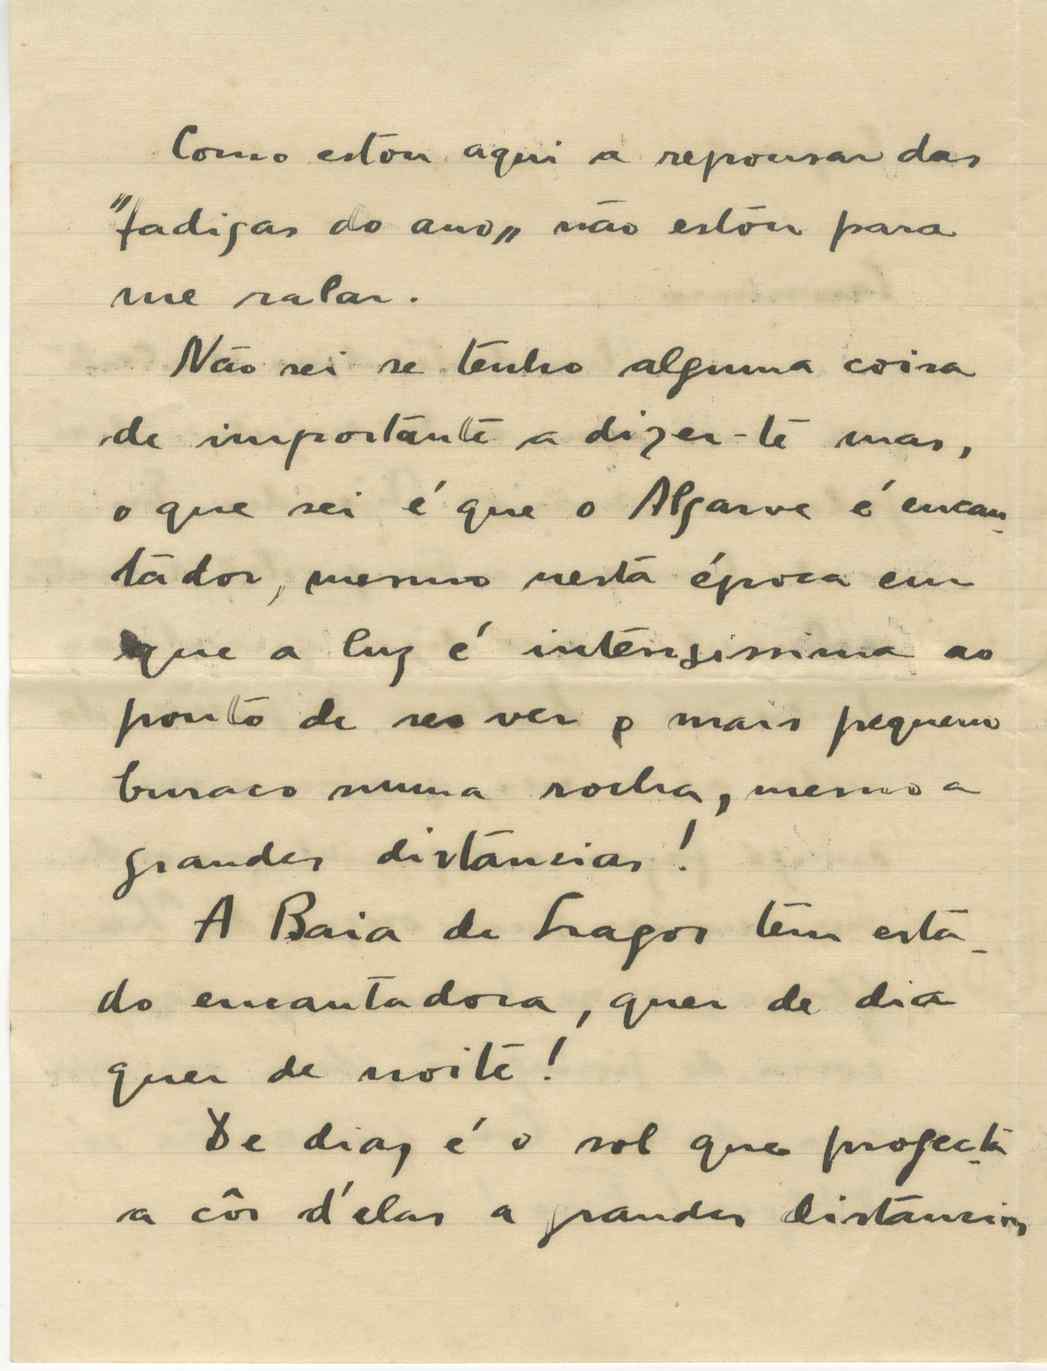 Como estou aqui a repousar das
"fadigas do ano„ não estou para
me ralar.
Não sei se tenho alguma coisa
de importante a dizer-te mas,
o que sei é que o Algarve é encan-
tador, mesmo nesta época em
que a luz é intensissima ao
ponto de se ver o mais pequeno
buraco numa rocha, mesmo a
grandes distâncias!
A Baia de Lagos tem esta-
do encantadora, quer de dia
quer de noite!
De dia, é o sol que projecta
a côr d'elas a grandes distancias